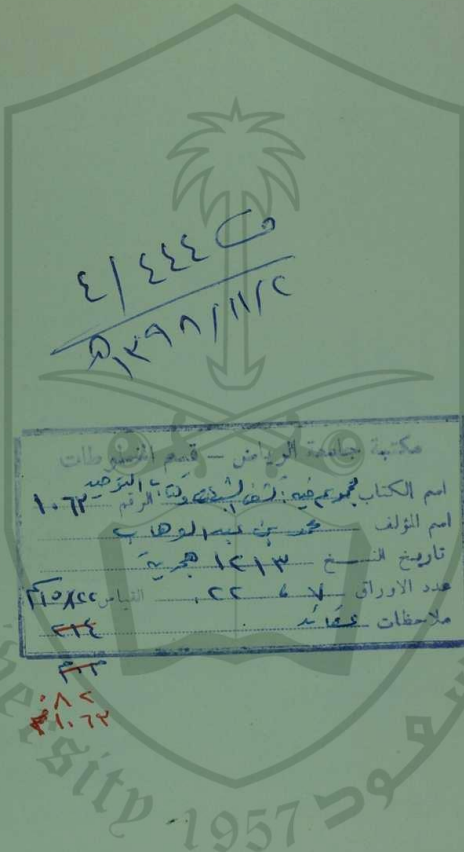 ف ٤٤٤ / ٤
٢ / ١١ / ١٣٩٨ هـ
مكتبة جامعة الرياض – قسم المخطوطات
اسم الكتاب مجموع فيه: كشف الشبهات وكتاب التوحيد الرقم ١٠٦٢
اسم المؤلف محمد بن عبد الوهاب
تاريخ النسخ ١٢١٣ هجرية
عدد الاوراق ٧، ٢٢ القياس ٢٢×١٥
ملاحظات عقائد
١٠٦٢
سعود
University 1957